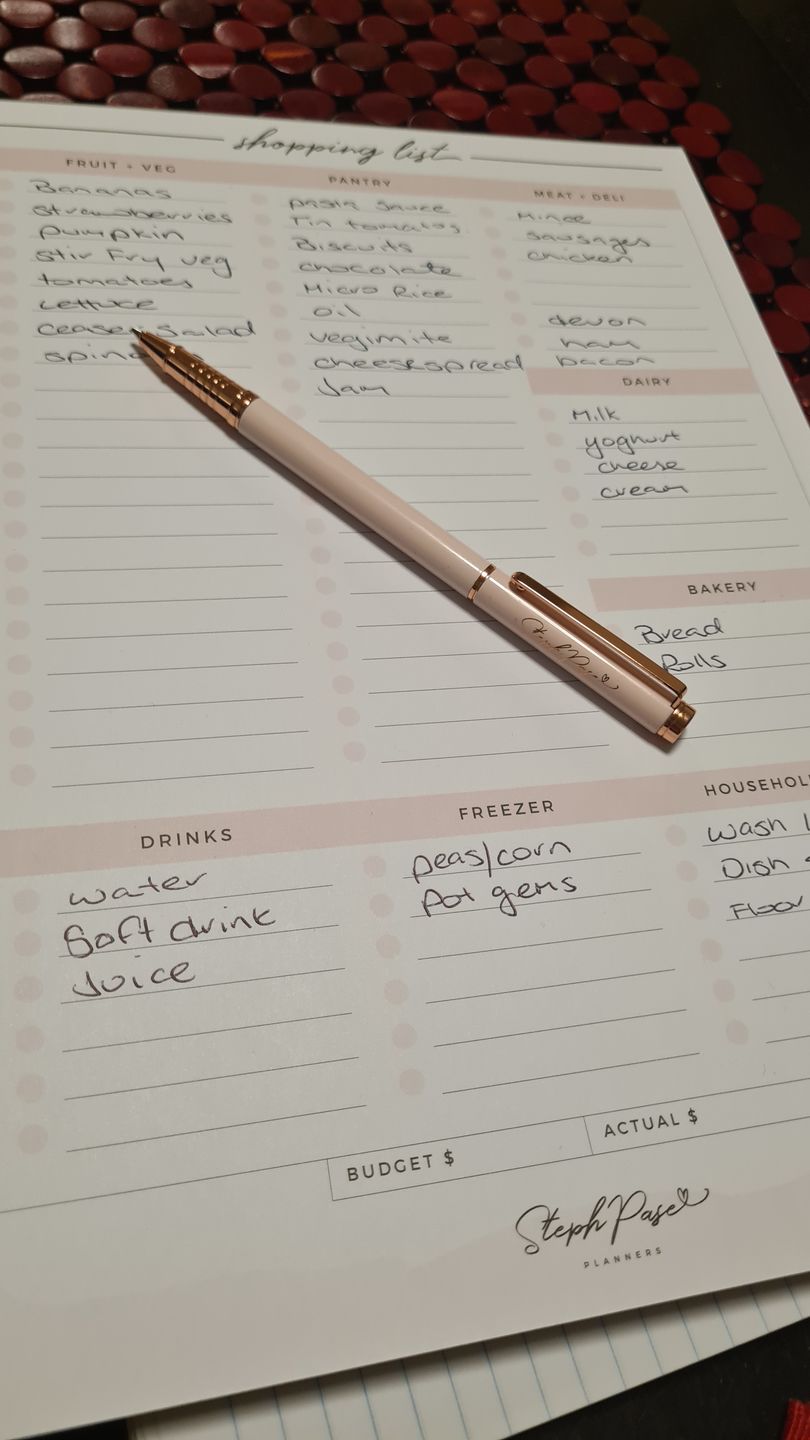 shopping list
FRUIT + VEG
Bananas
Strawberries
pumpkin
Stir Fry veg
tomatoes
Lettuce
Ceaser Salad
PANTRY
pasta sauce
Tin tomatos
Biscuits
chocolate
Micro Rice
oil
vegimite
cheesespread
Jam
MEAT + DELI
Mince
sausages
chicken
devon
ham
bacon
DAIRY
Milk
yoghurt
cheese
cream
BAKERY
Bread
Rolls
Steph Pase
DRINKS
water
Soft drink
Juice
FREEZER
peas/corn
Pot gems
HOUSEHOL
Wash
Dish
Floor
BUDGET $
ACTUAL $
Steph Pase
PLANNERS